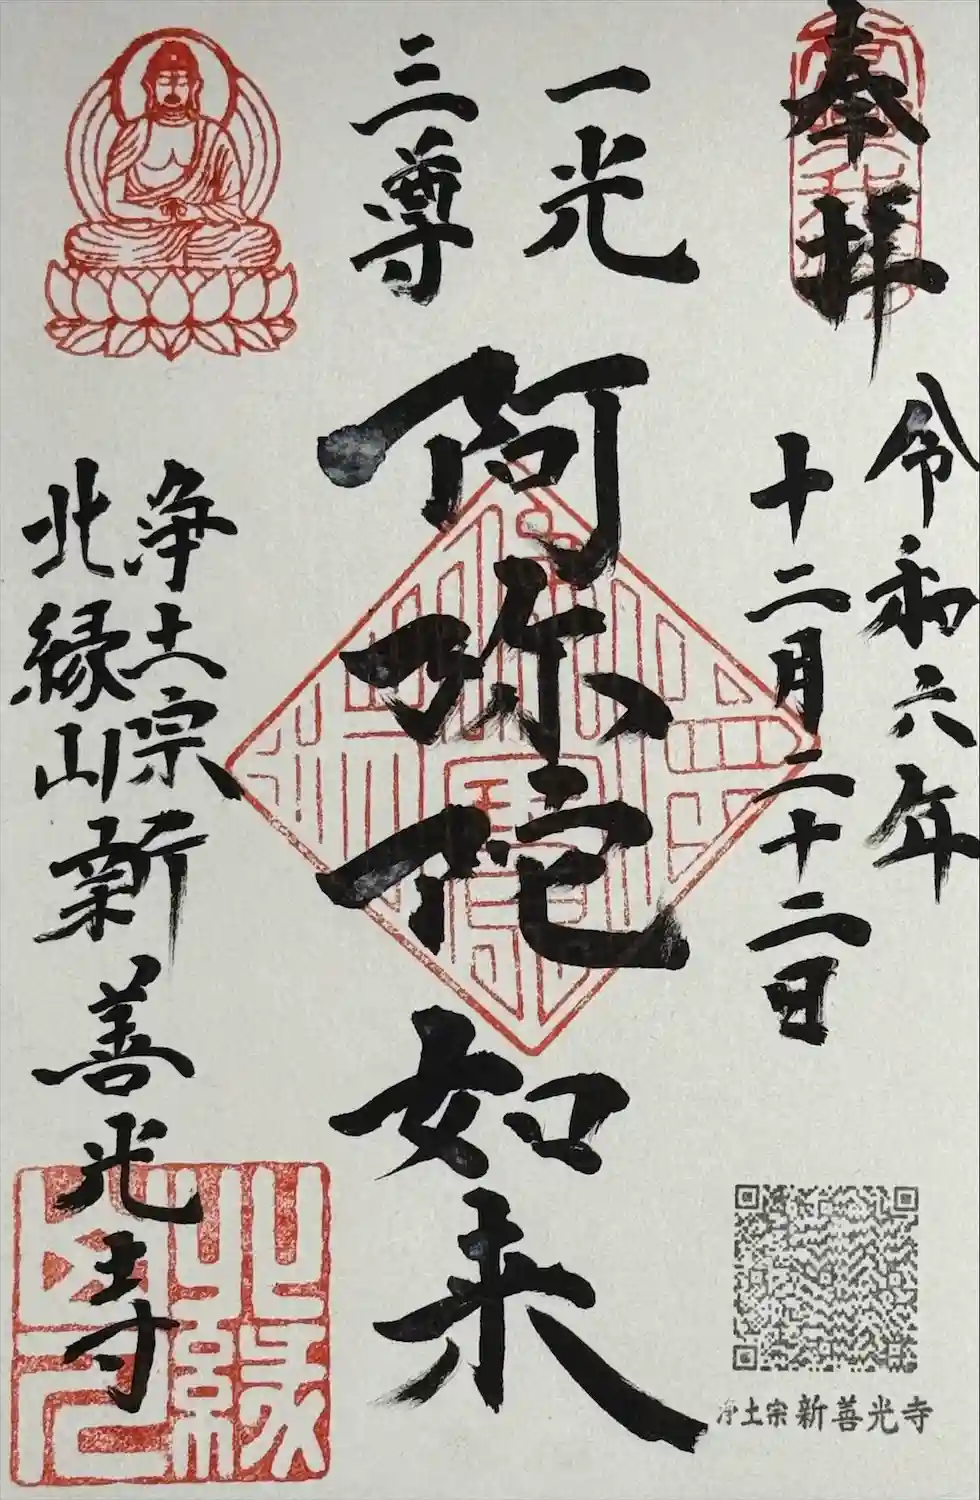 奉拝
令和六年
十二月二十二日
一光
三尊
阿弥陀如来
浄土宗
北縁山新善光寺
浄土宗新善光寺